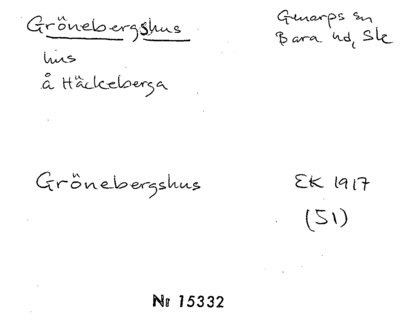 Grönebergshus
Genarps sn
Bara hd, Sk
hus
å Häckeberga
Grönebergshus
EK 1917
(51)
Nr 15332